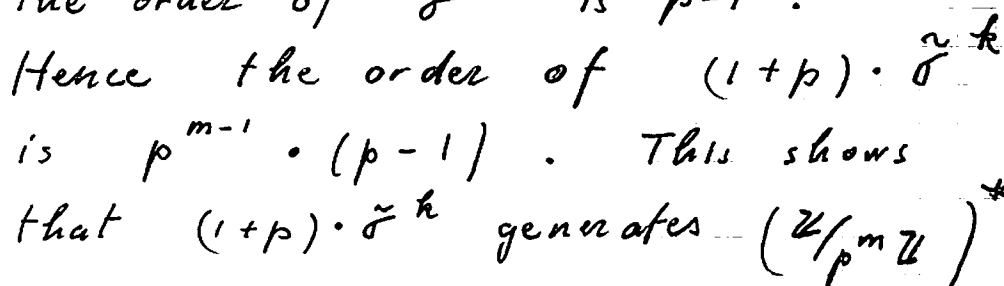 the order of is p-1.
Hence the order of (1+p)·σ̃^k
is p^{m-1}·(p-1). This shows
that (1+p)·σ̃^k generates (ℤ/p^mℤ)^*